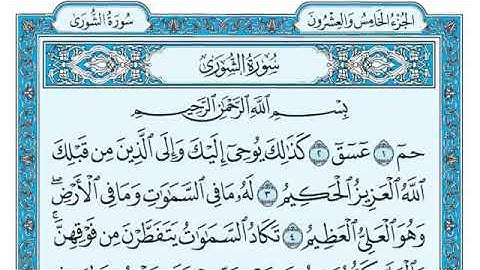 الجزء الخامس والعشرون
سورة الشورى
سورة الشورى
بسم الله الرحمن الرحيم
حمٓ ١ عٓسٓقٓ ٢ كَذَٰلِكَ يُوحِىٓ إِلَيْكَ وَإِلَى ٱلَّذِينَ مِن قَبْلِكَ
ٱللَّهُ ٱلْعَزِيزُ ٱلْحَكِيمُ ٣ لَهُۥ مَا فِى ٱلسَّمَٰوَٰتِ وَمَا فِى ٱلْأَرْضِۖ
وَهُوَ ٱلْعَلِىُّ ٱلْعَظِيمُ ٤ تَكَادُ ٱلسَّمَٰوَٰتُ يَتَفَطَّرْنَ مِن فَوْقِهِنَّۚ